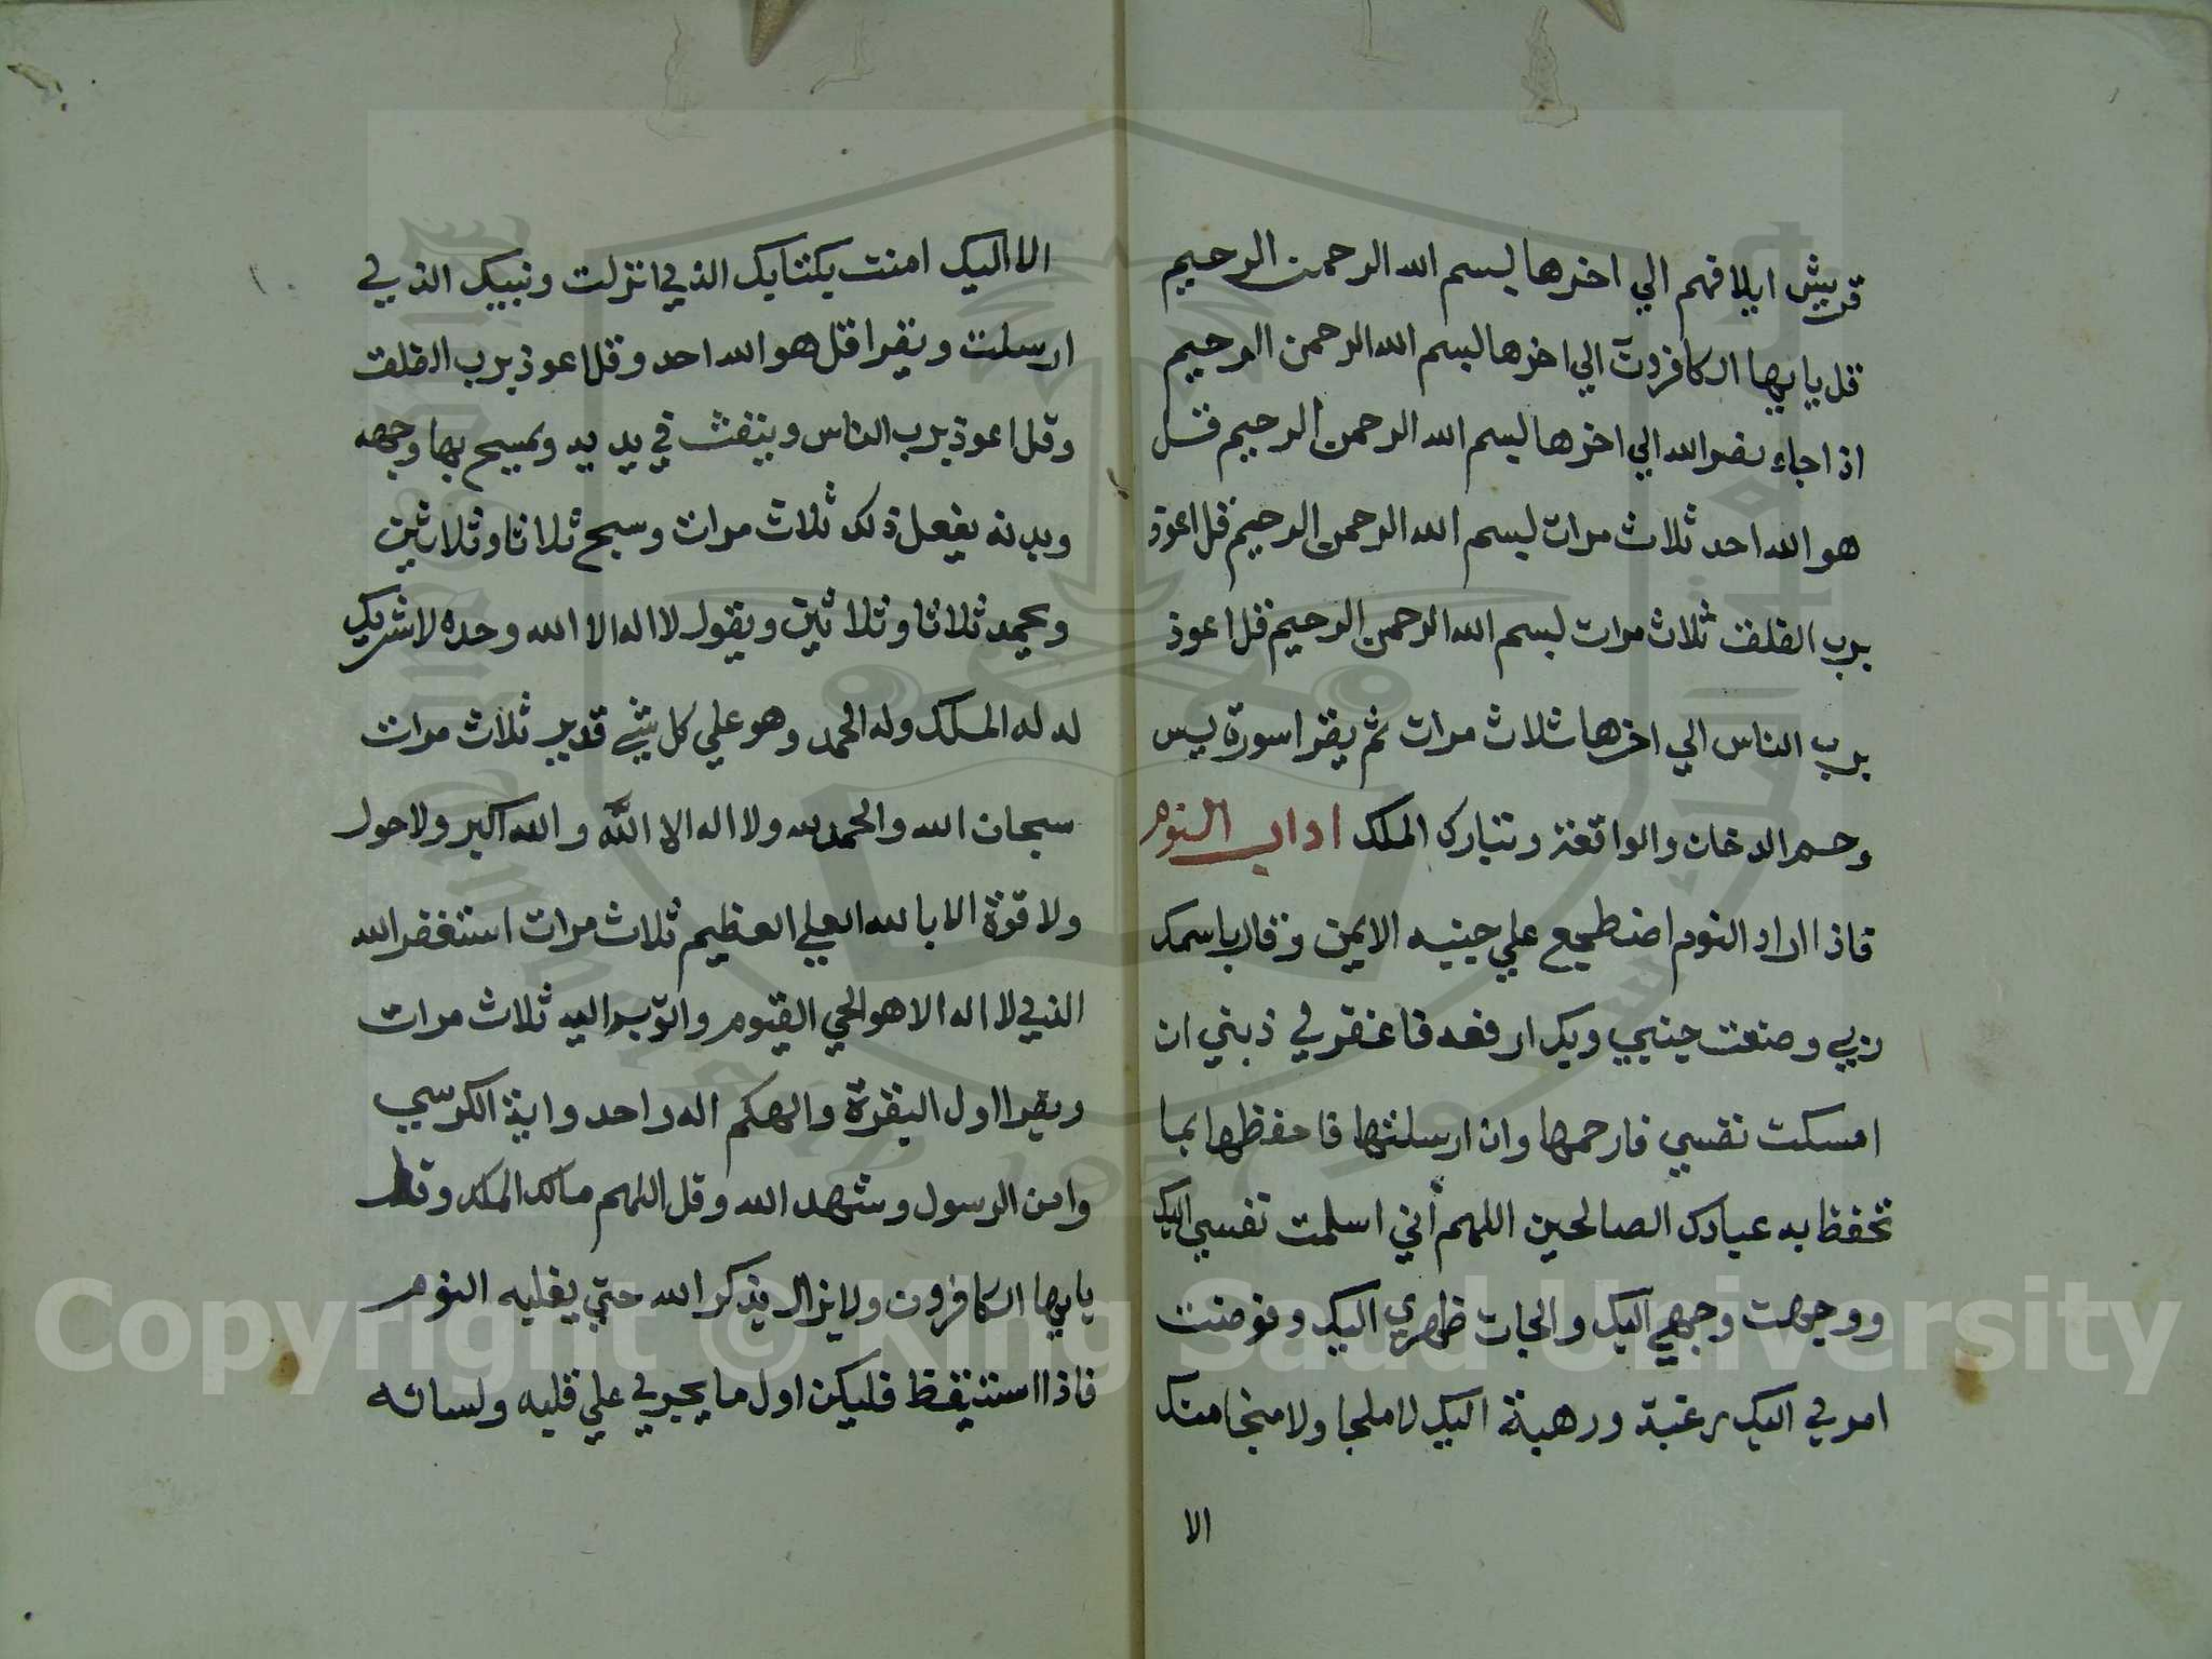 قريش ايلافهم الي اخرها بسم الله الرحمن الرحيم
قل يا ايها الكافرون الي اخرها بسم الله الرحمن الرحيم
اذا جاء نصر الله الي اخرها بسم الله الرحمن الرحيم قل
هو الله احد ثلاث مرات بسم الله الرحمن الرحيم قل اعوذ
برب الفلق ثلاث مرات بسم الله الرحمن الرحيم قل اعوذ
برب الناس الي اخرها ثلاث مرات ثم يقرا سورة يس
وحم الدخان والواقعة وتبارك الملك اداب النوم
فاذا اراد النوم اضطجع علي جنبه الايمن وقال باسمك
ربي وضعت جنبي وبك ارفعه فاغفر لي ذنبي ان
امسكت نفسي فارحمها وان ارسلتها فاحفظها بما
تحفظ به عبادك الصالحين اللهم أني اسلمت نفسي اليك
ووجهت وجهي اليك والجات ظهري اليك وفوضت
امري اليك رغبة ورهبة اليك لا ملجا ولا منجا منك
الا
الا اليك امنت بكتابك الذي انزلت ونبيك الذي
ارسلت ويقرا قل هو الله احد وقل اعوذ برب الفلق
وقل اعوذ برب الناس وينفث في يديه ويمسح بها وجهه
وبدنه يفعل ذلك ثلاث مرات وسبح ثلاثا وثلاثين
ويحمد ثلاثا وثلاثين ويقول لا اله الا الله وحده لا شريك
له له الملك وله الحمد وهو علي كل شي قدير ثلاث مرات
سبحان الله والحمد لله ولا اله الا اللّه والله اكبر ولا حول
ولا قوة الا بالله العلي العظيم ثلاث مرات استغفر الله
الذي لا اله الا هو الحي القيوم واتوب اليه ثلاث مرات
ويقرا اول البقرة والهكم اله واحد واية الكرسي
وامن الرسول وشهد الله وقل اللهم مالك الملك وقل
يا ايها الكافرون ولا يزال يذكر الله حتي يغلبه النوم
فاذا استيقظ فليكن اول ما يجري علي قلبه ولسانه
Copyright © King Saud University